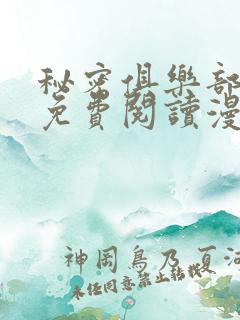 秘密俱樂部
免費閱讀漫
神岡鳥乃 夏河
未任同意禁止转载